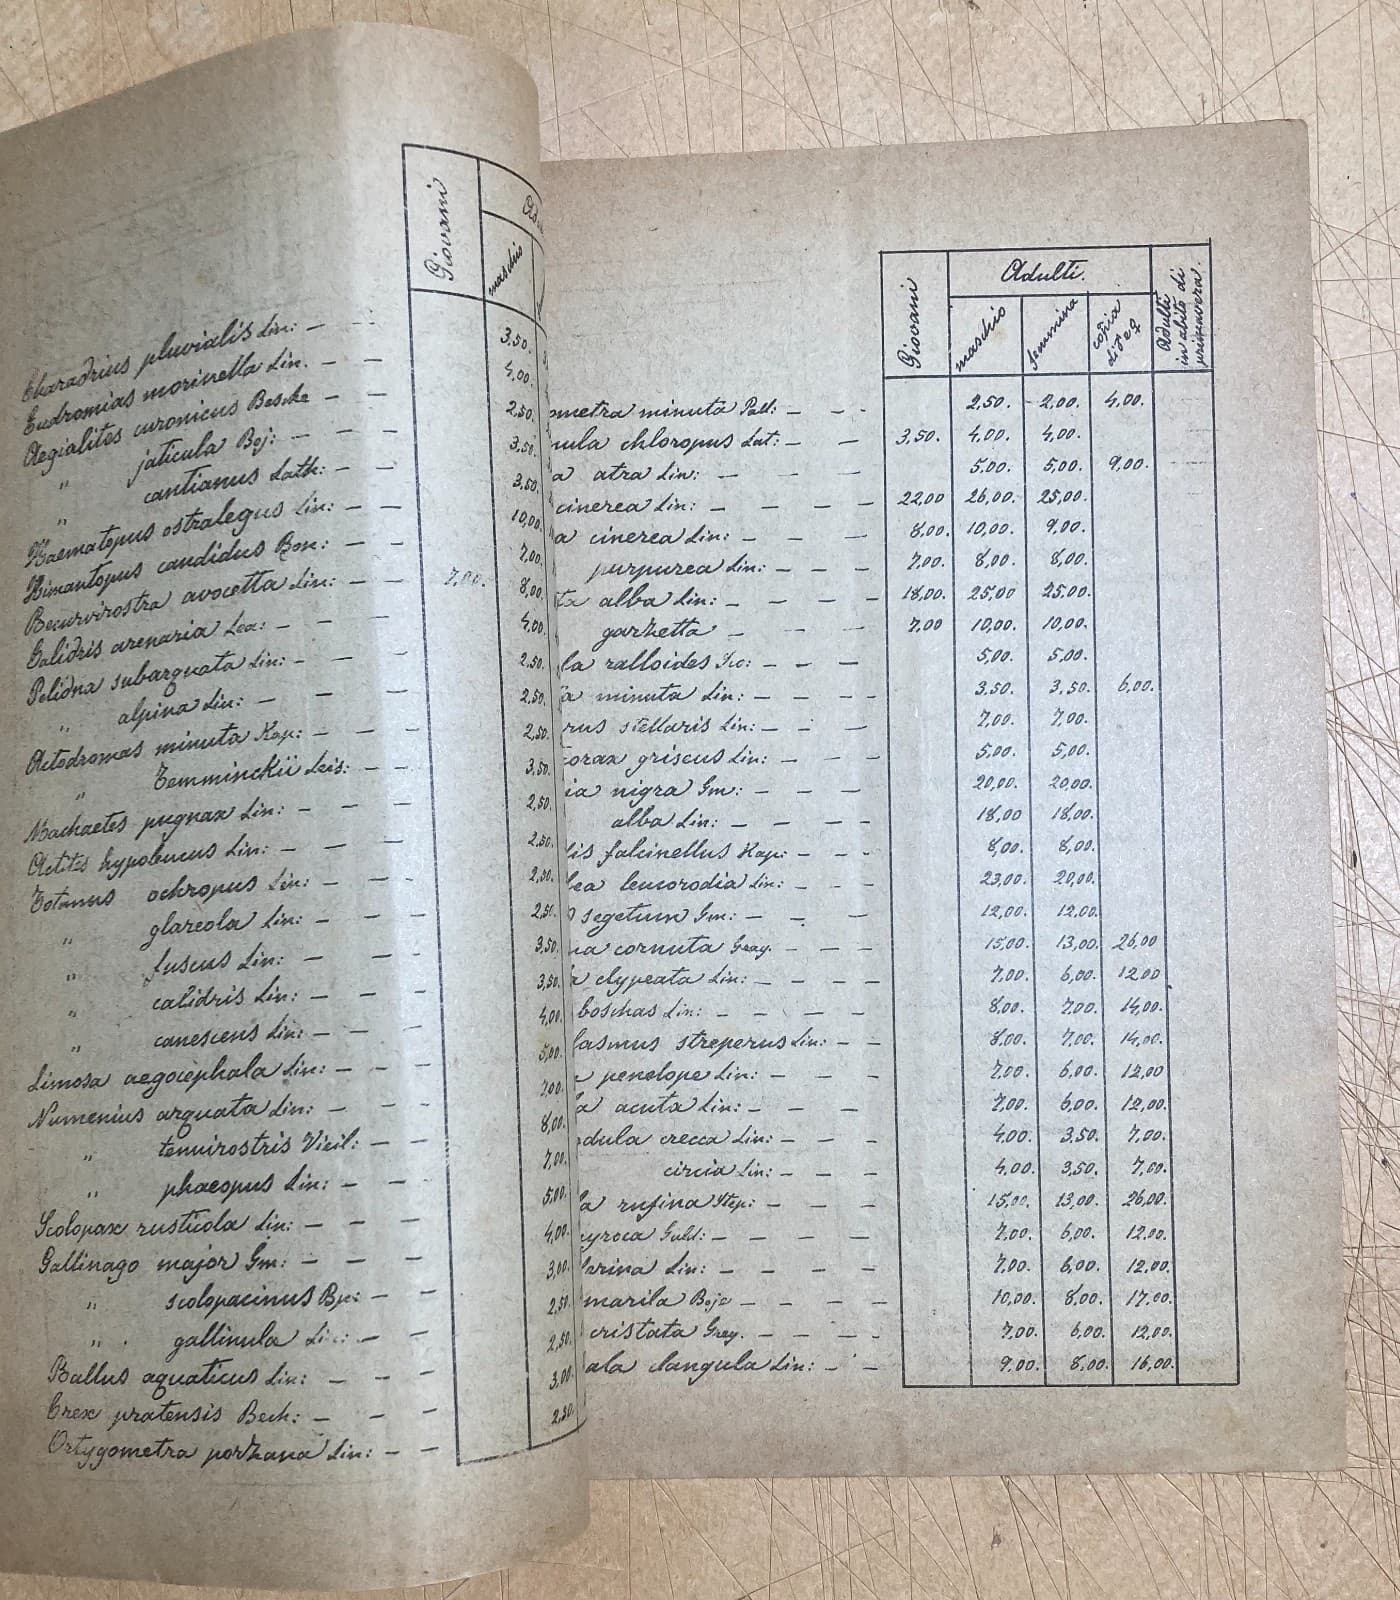 Giovani
maschio
Charadrius pluvialis Lin: — 3.50.
Eudromias morinella Lin. — 4.00.
Aegialites curonicus Beseke — 2.50.
" jaticula Boj: — — 3,50.
" cantianus Lath: — — 3,50.
Haematopus ostralegus Lin: — — 10,00.
Himantopus candidus Bon: — — 7,00.
Recurvirostra avocetta Lin: — — 7,00. 8,00.
Calidris arenaria Lea: — — — 4,00.
Pelidna subarquata Lin: — — — 2,50.
" alpina Lin: — — — 2,50.
Actodromas minuta Kap: — — — 2,50.
" Temminckii Leis: — — 3,50.
Machaetes pugnax Lin: — — — 2,50.
Actitis hypoleucus Lin: — — — 2,50.
Totanus ochropus Lin: — — — 2,50.
" glareola Lin: — — — 2,50.
" fuscus Lin: — — — 3,50.
" calidris Lin: — — — 3,50.
" canescens Lin: — — 4,00.
Limosa aegocephala Lin: — — — 5,00.
Numenius arquata Lin: — — — 7,00.
" tenuirostris Vieil: — — 8,00.
" phaeopus Lin: — — — 7,00.
Scolopax rusticola Lin: — — — — 5,00.
Gallinago major Gm: — — — — 4,00.
" scolopacinus Bp: — — 3,00.
" gallinula Lin: — — 2,50.
Rallus aquaticus Lin: — — — 2,50.
Crex pratensis Bech: — — — 3,00.
Ortygometra porzana Lin: — — 2,50.
Giovani
Adulti.
maschio
femmina
copia di ♂ e ♀
Adulti in abito di primavera.
ometra minuta Pall: — — - 2,50. 2,00. 4,00.
nula chloropus Lat: — — 3,50. 4,00. 4,00.
a atra Lin: — — — 5,00. 5,00. 9,00.
cinerea Lin: — — — — — 22,00 26,00. 25,00.
a cinerea Lin: — — — — 8,00. 10,00. 9,00.
purpurea Lin: — — — — 7,00. 8,00. 8,00.
ta alba Lin: — — — — — 18,00. 25,00 25,00.
garzetta — — — 7,00 10,00. 10,00.
la ralloides Sco: — — — 5,00. 5,00.
a minuta Lin: — — — — 3,50. 3,50. 6,00.
rus stellaris Lin: — - — 7,00. 7,00.
corax griseus Lin: — — — — 5,00. 5,00.
ia nigra Gm: — — — — 20,00. 20,00.
alba Lin: — — — — — 18,00 18,00.
is falcinellus Kap: — — - 8,00. 8,00.
lea leucorodia Lin: — — — 23,00. 20,00.
segetum Gm: — — — 12,00. 12,00.
na cornuta Gray. — — — 15,00. 13,00. 26,00
a clypeata Lin: — — — — 7,00. 6,00. 12,00
boschas Lin: — — — — 8,00. 7,00. 14,00.
lasmus streperus Lin: — — 8,00. 7,00. 14,00.
penelope Lin: — — — — 7,00. 6,00. 12,00
la acuta Lin: — — — — 7,00. 6,00. 12,00.
dula crecca Lin: — — — 4,00. 3,50. 7,00.
circia Lin: — — — 4,00. 3,50. 7,00.
la rufina Step: — — — 15,00. 13,00. 26,00.
nyroca Guld: — — — — 7,00. 6,00. 12,00.
larina Lin: — — — — 7,00. 6,00. 12,00.
marila Boje — — — — 10,00. 8,00. 17,00.
cristata Gray. — — — - 7,00. 6,00. 12,00.
ala clangula Lin: — - — 9,00. 8,00. 16,00.